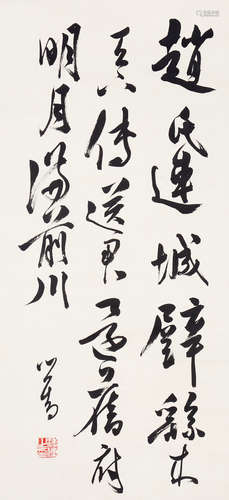 趙氏連城璧繇來
天下傳送君還舊府
明月滿前川
心畬